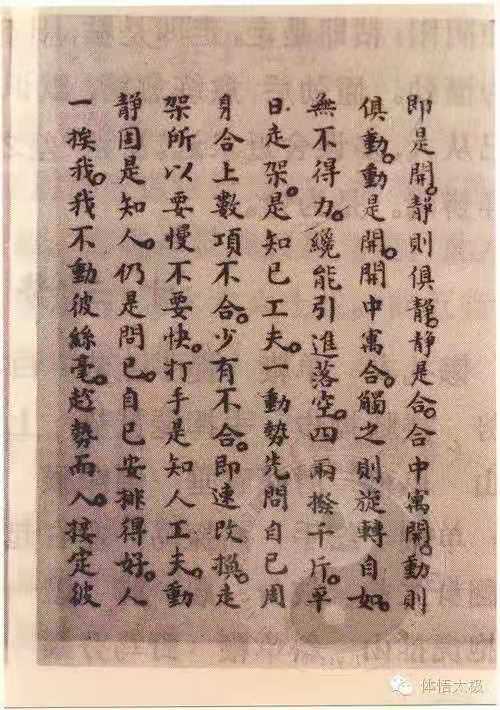 即是開。靜則俱靜。靜是合。合中寓開。動則
俱動。動是開。開中寓合。觸之則旋轉自如。
無不得力。纔能引進落空。四兩撥千斤。平
日走架。是知已工夫。一動勢先問自已周
身合上數項不合。少有不合。即速改換。走
架所以要慢不要快。打手是知人工夫。動
靜固是知人。仍是問已。自已安排得好。人
一挨我。我不動彼絲毫。趁勢而入。接定彼
体悟太极